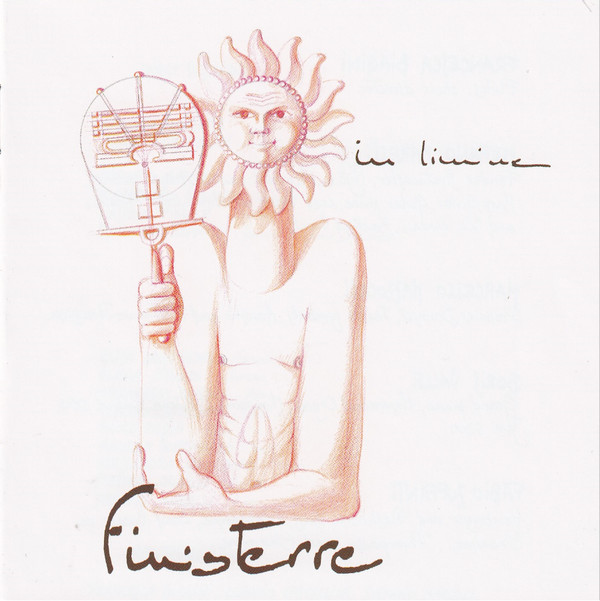 in limine
finisterre